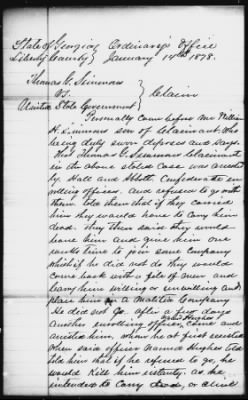 State of Georgia } Ordinary's Office
Liberty County } January 14th 1878.
Thomas G. Simmons
vs. } Claim
United States Government
Personally came before me William
H. Simmons son of Claimant. Who
being duly sworn deposes and says.
That Thomas G. Simmons Claimant
in the above stated case was arrested
by Hall and Abbott. Confederate en-
rolling officers. And refused to go with
them. told them that if they carried
him they would have to carry him
dead. they then said they would
leave him and give him one
weeks time to join some company
which if he did not do they would
come back with a file of men and
carry him willing or unwilling and
place him in a Malitia Company
He did not go. after a few days
another enrolling officer, John Hughes came and
arrested him, whom he at first resisted
when said officer named Hughes
told him that if he refused to go, he
would kill him instantly. as he
intended to carry dead, or alive